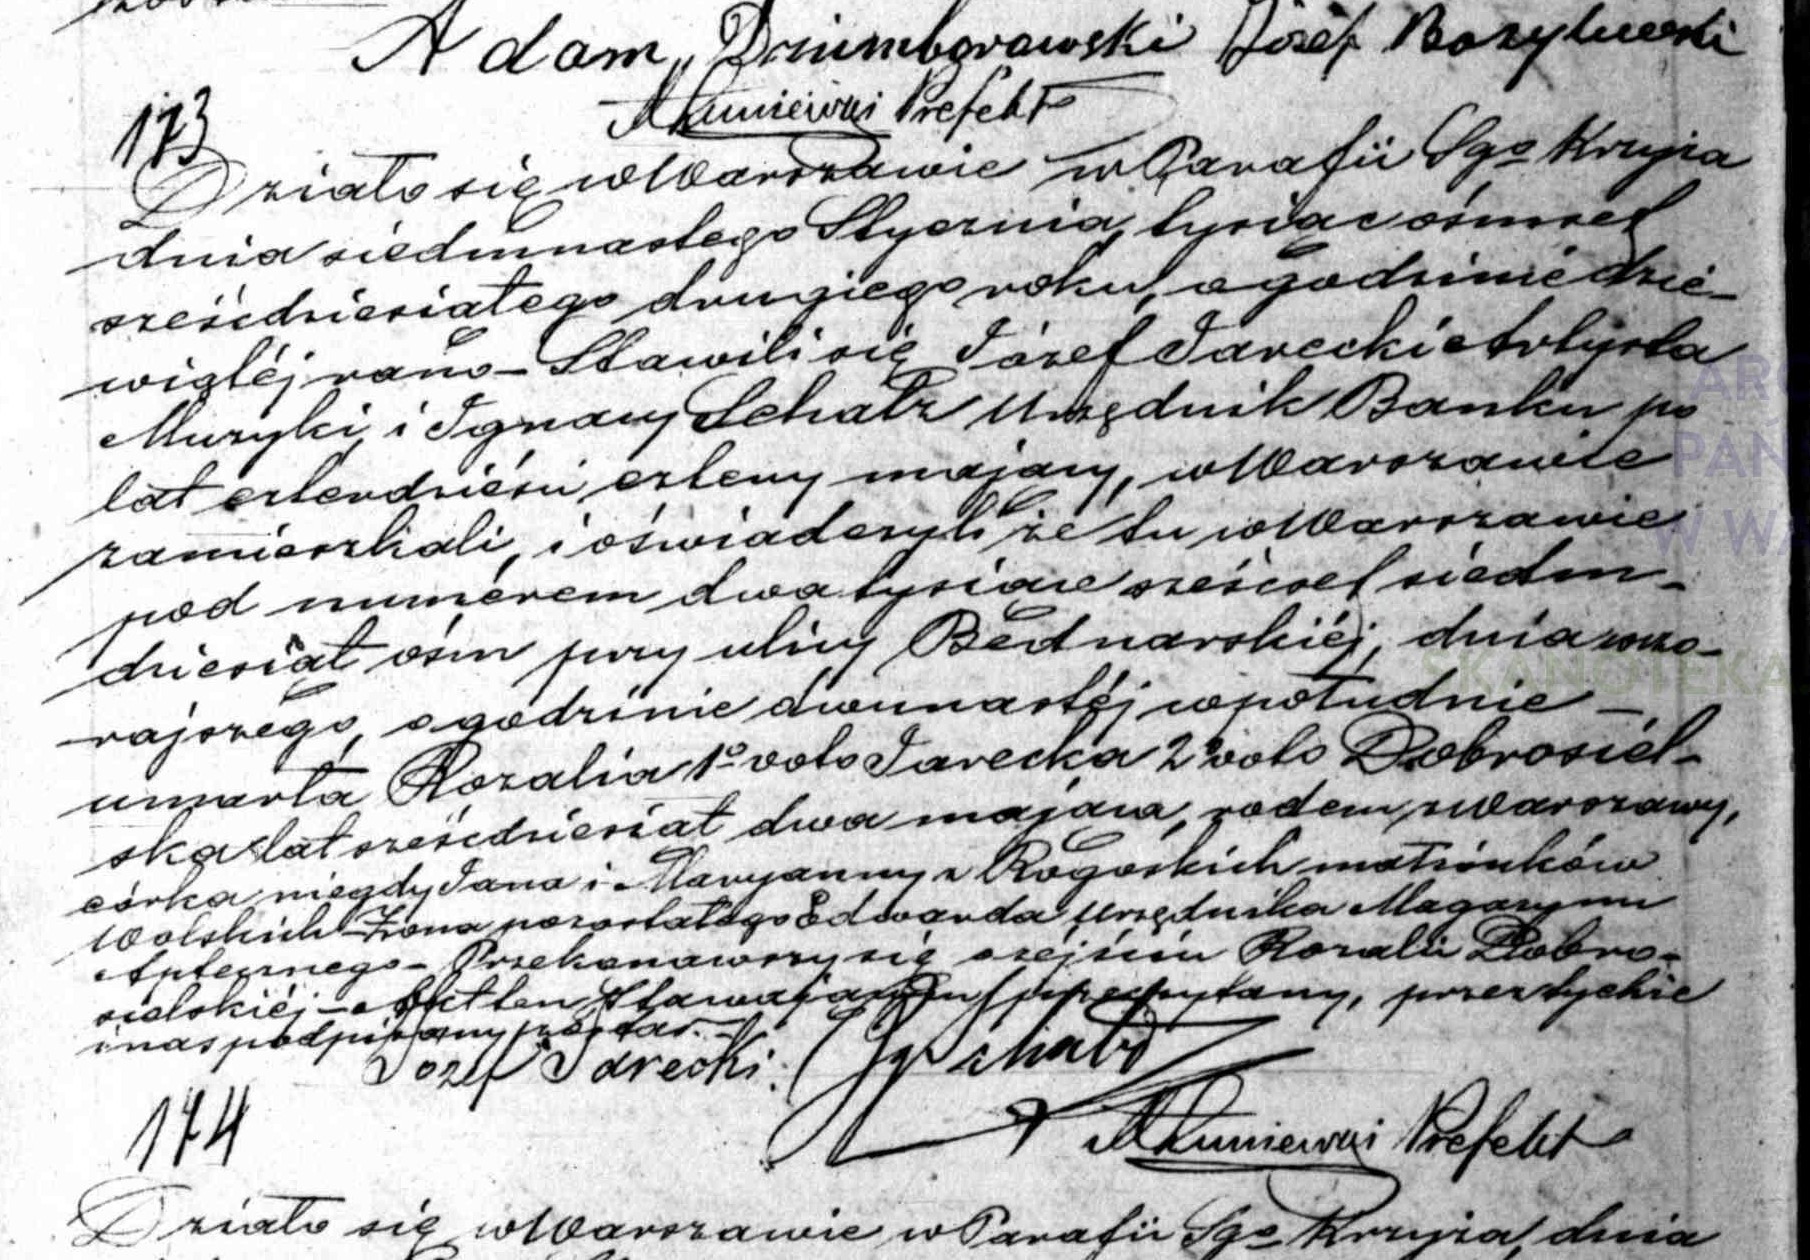 Adam Dziemborowski Józef
Prefekt
173
Działo się w Warszawie w Parafii Sgo Krzyża
dnia siedmnastego Stycznia, tysiąc ośmset
sześćdziesiątego drugiego roku, o godzinie dzie-
wiątéj rano – Stawili się Józef Jarecki Artysta
Muzyki, i Ignacy Schatz Urzędnik Banku po
lat czterdzieści cztery mający, w Warszawie
zamieszkali, i oświadczyli że tu w Warszawie
pod numerem dwa tysiące sześćset siedm-
dziesiąt ośm przy ulicy Bednarskiéj, dnia wczo-
rajszego, o godzinie dwunastéj w południe –
umarła Rozalia 1o voto Jarecka 2o voto Dobrosiel-
ska lat sześćdziesiąt dwa mająca, rodem z Warszawy,
córka niegdy Jana i Maryanny z Rogoskich małżonków
Wolskich – Żona pozostałego Edwarda Urzędnika Magazynu
Aptecznego – Przekonawszy się o zejściu Rozalii Dobro-
sielskiéj – Akt ten Stawającym przeczytany, przez tychże
i nas podpisany został. –
Józef Jarecki. Ig Schatz
Prefekt
174
Działo się w Warszawie w Parafii Sgo Krzyża, dnia
SKANOTEKA